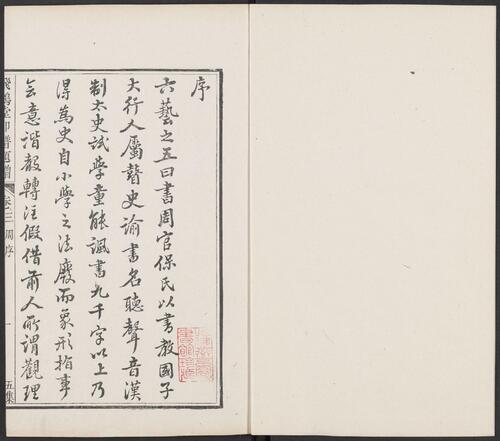 序
六藝之五曰書周官保氏以書教國子
大行人屬瞽史諭書名聽聲音漢
制太史試學童能諷書九千字以上乃
得為史自小學之法廢而象形指事
會意諧聲轉注假借前人所謂觀理
飛鴻堂印譜
卷三 周序 一 五集